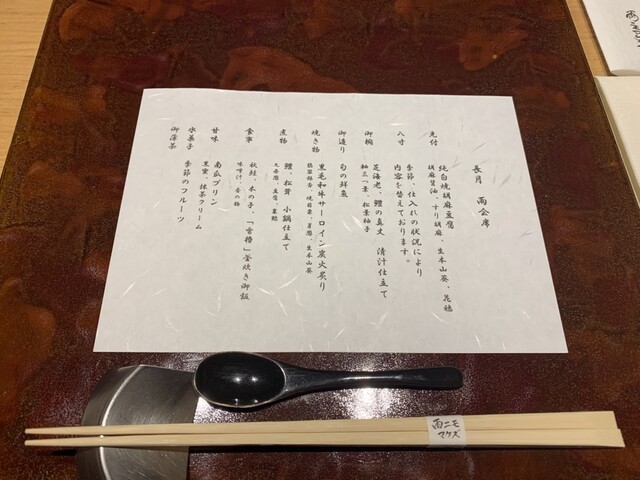 長月 雨会席
先付
純白焼胡麻豆腐
胡麻醤油、すり胡麻、生本山葵、花穂
八寸
季節、仕入れの状況により
内容を替えております。
御椀
芝海老、鱧の真丈 清汁仕立て
軸三つ葉、松葉柚子
御造り
旬の鮮魚
焼き物
黒毛和牛サーロイン炭火炙り
生本山葵
煮物
鱧、松茸 小鍋仕立て
食事
秋鮭、木の子、「雪椿」釜炊き御飯
味噌汁、香の物
甘味
南瓜プリン
黒蜜、抹茶クリーム
水菓子
季節のフルーツ
御薄茶
雨ニモ
マケズ